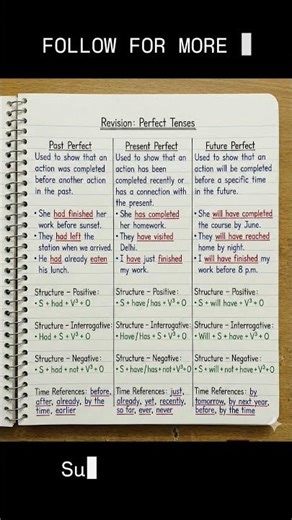 FOLLOW FOR MORE
Revision: Perfect Tenses
Past Perfect
Used to show that an
action was completed
before another action
in the past.
• She had finished her
work before sunset.
• They had left the
station when we arrived.
• He had already eaten
his lunch.
Structure - Positive:
• S + had + V³ + O
Structure - Interrogative:
• Had + S + V³ + O
Structure - Negative:
• S + had + not + V³ + O
Time References: before,
after, already, by the
time, earlier
Present Perfect
Used to show that an
action has been
completed recently or
has a connection with
the present.
• She has completed
her homework.
• They have visited
Delhi.
• I have just finished
my work.
Structure - Positive:
• S + have/has + V³ + O
Structure - Interrogative:
• Have/Has + S + V³ + O
Structure - Negative:
• S + have/has + not + V³ + O
Time References: just,
already, yet, recently,
so far, ever, never
Future Perfect
Used to show that an
action will be completed
before a specific time
in the future.
• She will have completed
the course by June.
• They will have reached
home by night.
• I will have finished my
work before 8 p.m.
Structure - Positive:
• S + will have + V³ + O
Structure - Interrogative:
• Will + S + have + V³ + O
Structure - Negative:
• S + will + not + have + V³ + O
Time References: by
tomorrow, by next year,
before, by the time
Su